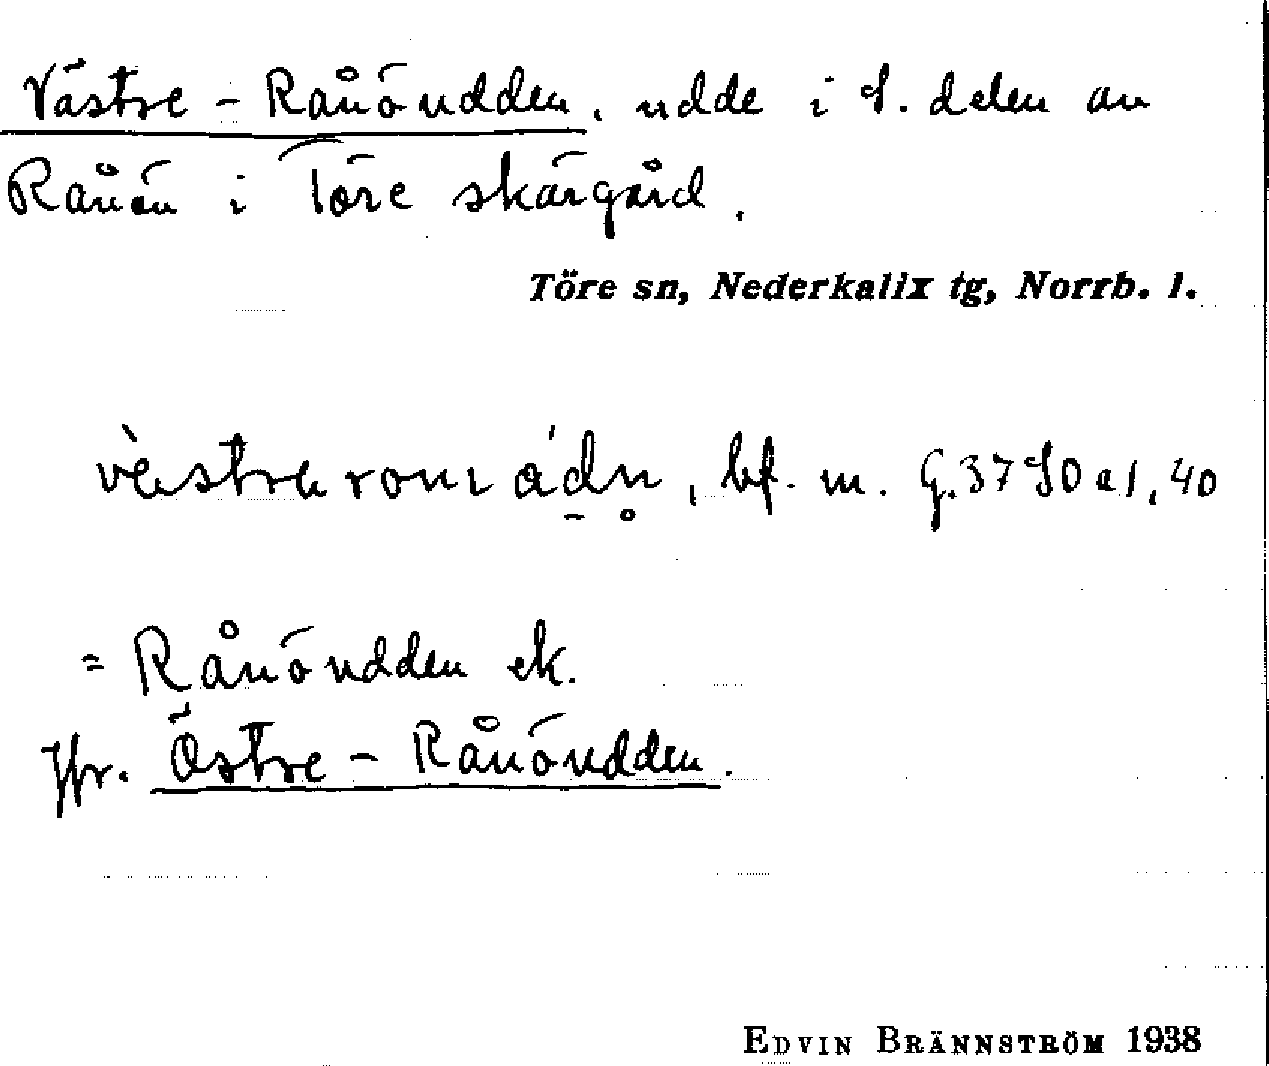 Västre-Rånöudden, udde i S. delen av
Rånön i Töre skärgård.
Töre sn, Nederkalix tg, Norrb. l.
bf. m.
= Rånöudden ek.
Jfr. Östre-Rånöudden.
EDVIN BRÄNNSTRÖM 1938